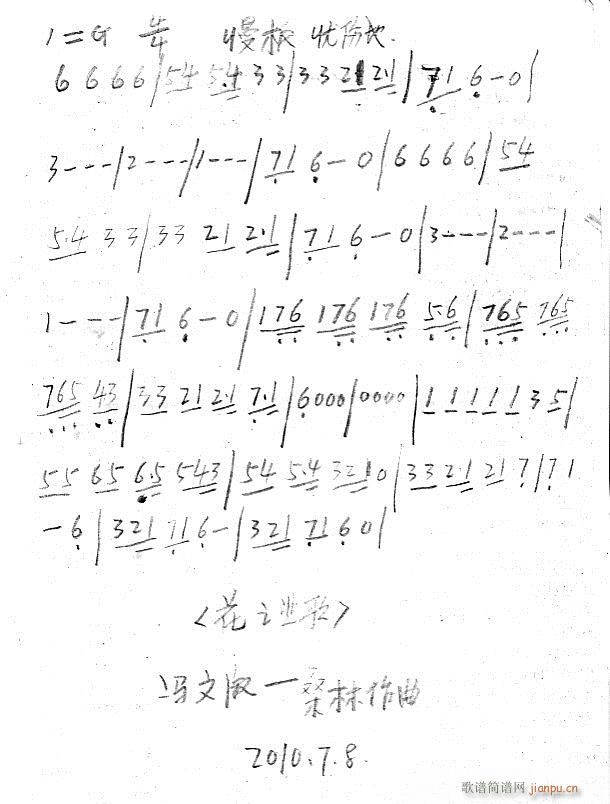 1=G 4/4 慢板 忧伤地
6 6 6 6/54 5·4 3 3/3 3 21 2·1/71 6-0/
3---/2---/1---/71 6-0/6 6 6 6/54
5·4 33/33 21 2·1/71 6-0/3---/2---/
1---/71 6-0/176 176 176 5·6/765 765
765 43/33 21 2·1 7·1/6000/0000/1 1 1 1 1 3 5/
55 65 6·5 543/54 5·4 3210/33 2·1 21 7/71
-6/321 71 6-/321 71 60/
<花之悲歌>
冯文淑一桑林作曲
2010.7.8.
歌谱简谱网 jianpu.cn